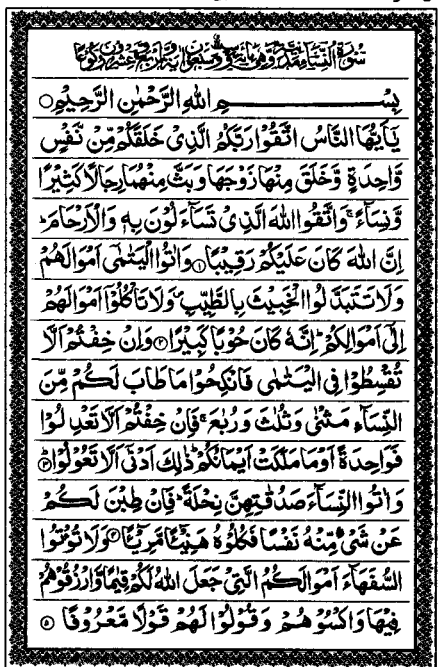 سُوْرَةُ النِّسَآءِ مَدَنِيَّةٌ وَّهِيَ مِائَةٌ وَّسِتٌّ وَّسَبْعُوْنَ اٰيَةً وَّاَرْبَعٌ وَّعِشْرُوْنَ رُكُوْعًا
بِسْمِ اللهِ الرَّحْمٰنِ الرَّحِيْمِ ○
يٰۤاَيُّهَا النَّاسُ اتَّقُوْا رَبَّكُمُ الَّذِىْ خَلَقَكُمْ مِّنْ نَّفْسٍ
وَّاحِدَةٍ وَّخَلَقَ مِنْهَا زَوْجَهَا وَبَثَّ مِنْهُمَا رِجَالًا كَثِيْرًا
وَّنِسَآءً ۚ وَاتَّقُوا اللهَ الَّذِىْ تَسَآءَلُوْنَ بِهٖ وَالْاَرْحَامَ ؕ
اِنَّ اللهَ كَانَ عَلَيْكُمْ رَقِيْبًا ۱ وَاٰتُوا الْيَتٰمٰٓى اَمْوَالَهُمْ
وَلَا تَتَبَدَّلُوا الْخَبِيْثَ بِالطَّيِّبِ ۪ وَلَا تَاْكُلُوْۤا اَمْوَالَهُمْ
اِلٰٓى اَمْوَالِكُمْ ؕ اِنَّهٗ كَانَ حُوْبًا كَبِيْرًا ۲ وَاِنْ خِفْتُمْ اَلَّا
تُقْسِطُوْا فِى الْيَتٰمٰى فَانْكِحُوْا مَا طَابَ لَكُمْ مِّنَ
النِّسَآءِ مَثْنٰى وَثُلٰثَ وَرُبٰعَ ۚ فَاِنْ خِفْتُمْ اَلَّا تَعْدِلُوْا
فَوَاحِدَةً اَوْ مَا مَلَكَتْ اَيْمَانُكُمْ ؕ ذٰلِكَ اَدْنٰٓى اَلَّا تَعُوْلُوْا ۳
وَاٰتُوا النِّسَآءَ صَدُقٰتِهِنَّ نِحْلَةً ؕ فَاِنْ طِبْنَ لَكُمْ
عَنْ شَىْءٍ مِّنْهُ نَفْسًا فَكُلُوْهُ هَنِيْٓـئًا مَّرِيْٓـئًا ۴ وَلَا تُؤْتُوا
السُّفَهَآءَ اَمْوَالَكُمُ الَّتِىْ جَعَلَ اللهُ لَكُمْ قِيٰمًا وَّارْزُقُوْهُمْ
فِيْهَا وَاكْسُوْهُمْ وَقُوْلُوْا لَهُمْ قَوْلًا مَّعْرُوْفًا ۵